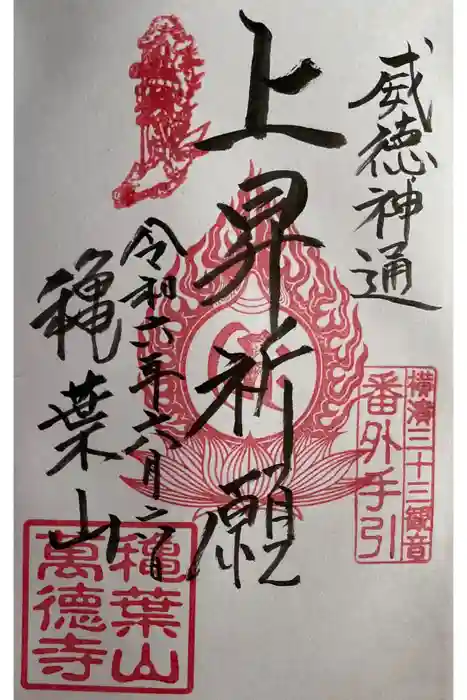 威徳神通
横濱三十三観音
番外手引
上昇祈願
令和六年六月日
穐葉山
穐葉山
萬德寺